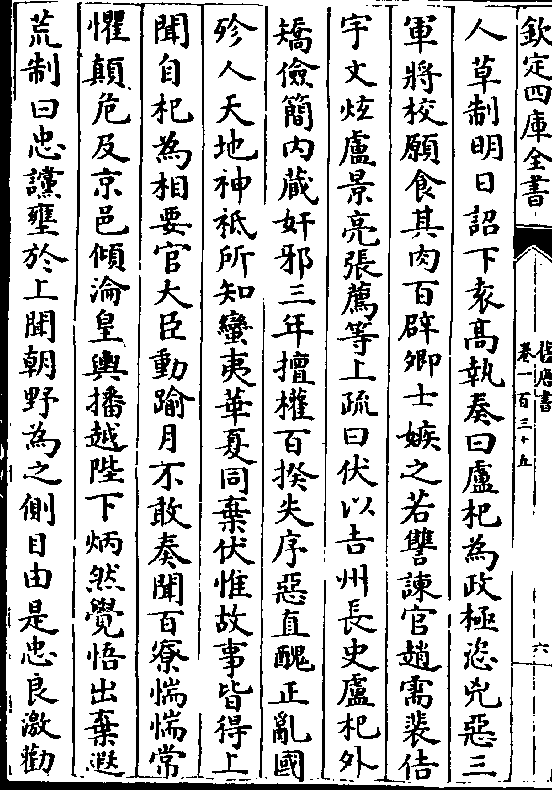 欽定四庫全書
舊唐書
卷一百三十五
六
人草制明日詔下袁髙執奏曰盧杞為政極恣兇惡三
軍將校願食其肉百辟卿士嫉之若讐諫官趙需裴佶
宇文炫盧景亮張薦等上疏曰伏以吉州長史盧杞外
矯儉簡内蔵奸邪三年擅權百揆失序惡直醜正亂國
殄人天地神祗所知蠻夷華夏同棄伏惟故事皆得上
聞自杞為相要官大臣動踰月不敢奏聞百寮惴惴常
懼顛危及京邑傾淪皇輿播越陛下炳然覺悟出棄遐
荒制曰忠讜壅於上聞朝野為之側目由是忠良激勸